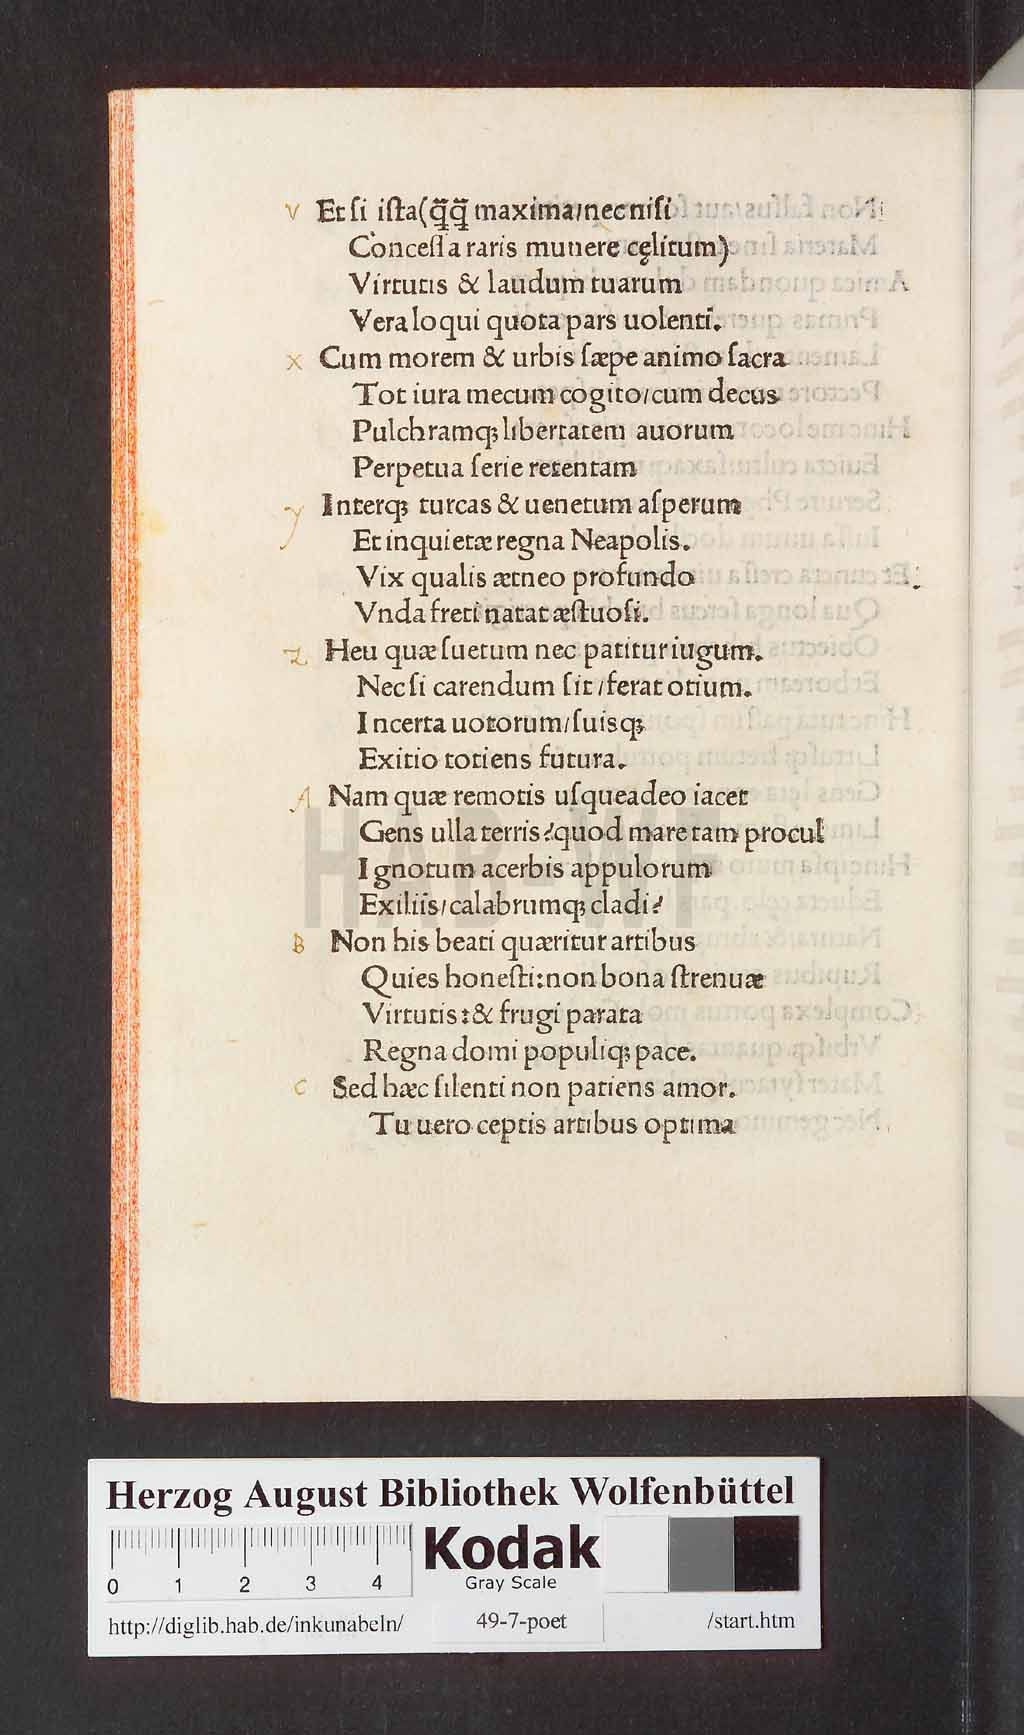 v Et ſi iſta(q̃q̃ maxima/nec niſi
Conceſſa raris munere cęlitum)
Virtutis & laudum tuarum
Vera loqui quota pars uolenti.
x Cum morem & urbis ſæpe animo ſacra
Tot iura mecum cogito/cum decus
Pulchramq; libertatem auorum
Perpetua ſerie retentam
y Interq; turcas & uenetum aſperum
Et inquietæ regna Neapolis.
Vix qualis ætneo profundo
Vnda freti natat æſtuoſi.
z Heu quæ ſuetum nec patitur iugum.
Nec ſi carendum ſit/ferat otium.
Incerta uotorum/ſuisq;
Exitio totiens futura.
A Nam quæ remotis uſqueadeo iacet
Gens ulla terris?quod mare tam procul
Ignotum acerbis appulorum
Exiliis/calabrumq; cladi?
B Non his beati quæritur artibus
Quies honeſti:non bona ſtrenuæ
Virtutis:& frugi parata
Regna domi populiq; pace.
C Sed hæc ſilenti non patiens amor.
Tu uero ceptis artibus optima
HAB-WF
Herzog August Bibliothek Wolfenbüttel
0 1 2 3 4
Kodak
Gray Scale
http://diglib.hab.de/inkunabeln/ 49-7-poet /start.htm